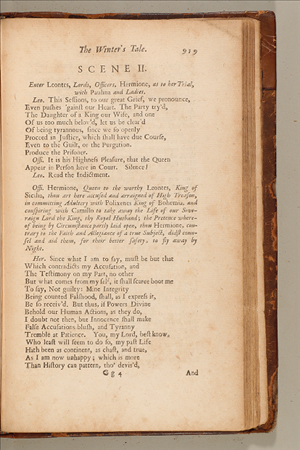 The Winter's Tale. 919
SCENE II.
Enter Leontes, Lords, Officers, Hermione, as to her Trial,
with Paulina and Ladies.
Leo. This Sessions, to our great Grief, we pronounce,
Even pushes 'gainst our Heart. The Party try'd,
The Daughter of a King our Wife, and one
Of us too much belov'd, let us be clear'd
Of being tyrannous, since we so openly
Proceed in Justice, which shall have due Course,
Even to the Guilt, or the Purgation.
Produce the Prisoner.
Offi. It is his Highness Pleasure, that the Queen
Appear in Person here in Court. Silence!
Leo. Read the Indictment.
Offi. Hermione, Queen to the worthy Leontes, King of
Sicilia, thou art here accused and arraigned of High Treason,
in committing Adultery with Polixenes King of Bohemia, and
conspiring with Camillo to take away the Life of our Sove-
raign Lord the King, thy Royal Husband; the Pretence where-
of being by Circumstance partly laid open, thou Hermione, con-
trary to the Faith and Allegiance of a true Subject, didst coun-
sel and aid them, for their better Safety, to fly away by
Night.
Her. Since what I am to say, must be but that
Which contradicts my Accusation, and
The Testimony on my Part, no other
But what comes from my self, it shall scarce boot me
To say, Not guilty: Mine Integrity
Being counted Falshood, shall, as I express it,
Be so receiv'd. But thus, if Powers Divine
Behold our Human Actions, as they do,
I doubt not then, but Innocence shall make
False Accusations blush, and Tyranny
Tremble at Patience. You, my Lord, best know,
Who least will seem to do so, my past Life
Hath been as continent, as chast, and true,
As I am now unhappy; which is more
Than History can pattern, tho' devis'd,
G g 4 And